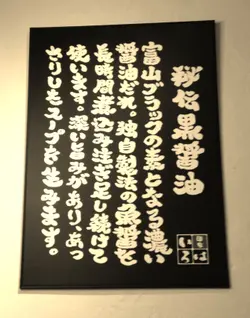 秘伝黒醤油
富山ブラックの素となる濃い
醤油だれ。独自製法の魚醤を
長時間煮込み注ぎ足し続けて
使います。深い旨みがあり、あっ
さりしたスープを生みます。
いろは